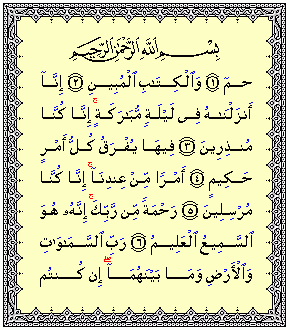 بِسْمِ ٱللَّهِ ٱلرَّحْمَٰنِ ٱلرَّحِيمِ
حمٓ ۝١ وَٱلْكِتَٰبِ ٱلْمُبِينِ ۝٢ إِنَّآ
أَنزَلْنَٰهُ فِى لَيْلَةٍ مُّبَٰرَكَةٍ ۚ إِنَّا كُنَّا
مُنذِرِينَ ۝٣ فِيهَا يُفْرَقُ كُلُّ أَمْرٍ
حَكِيمٍ ۝٤ أَمْرًا مِّنْ عِندِنَآ ۚ إِنَّا كُنَّا
مُرْسِلِينَ ۝٥ رَحْمَةً مِّن رَّبِّكَ ۚ إِنَّهُۥ هُوَ
ٱلسَّمِيعُ ٱلْعَلِيمُ ۝٦ رَبِّ ٱلسَّمَٰوَٰتِ
وَٱلْأَرْضِ وَمَا بَيْنَهُمَآ ۖ إِن كُنتُم